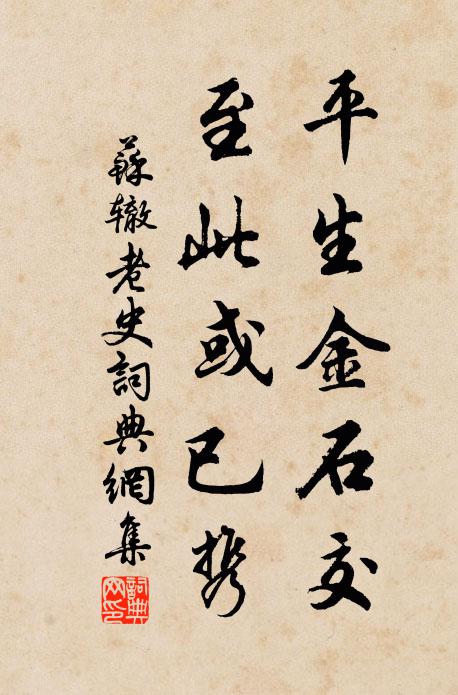 平生金石交
至此或已携
蘇辙老史詞典網集
詞典
网印